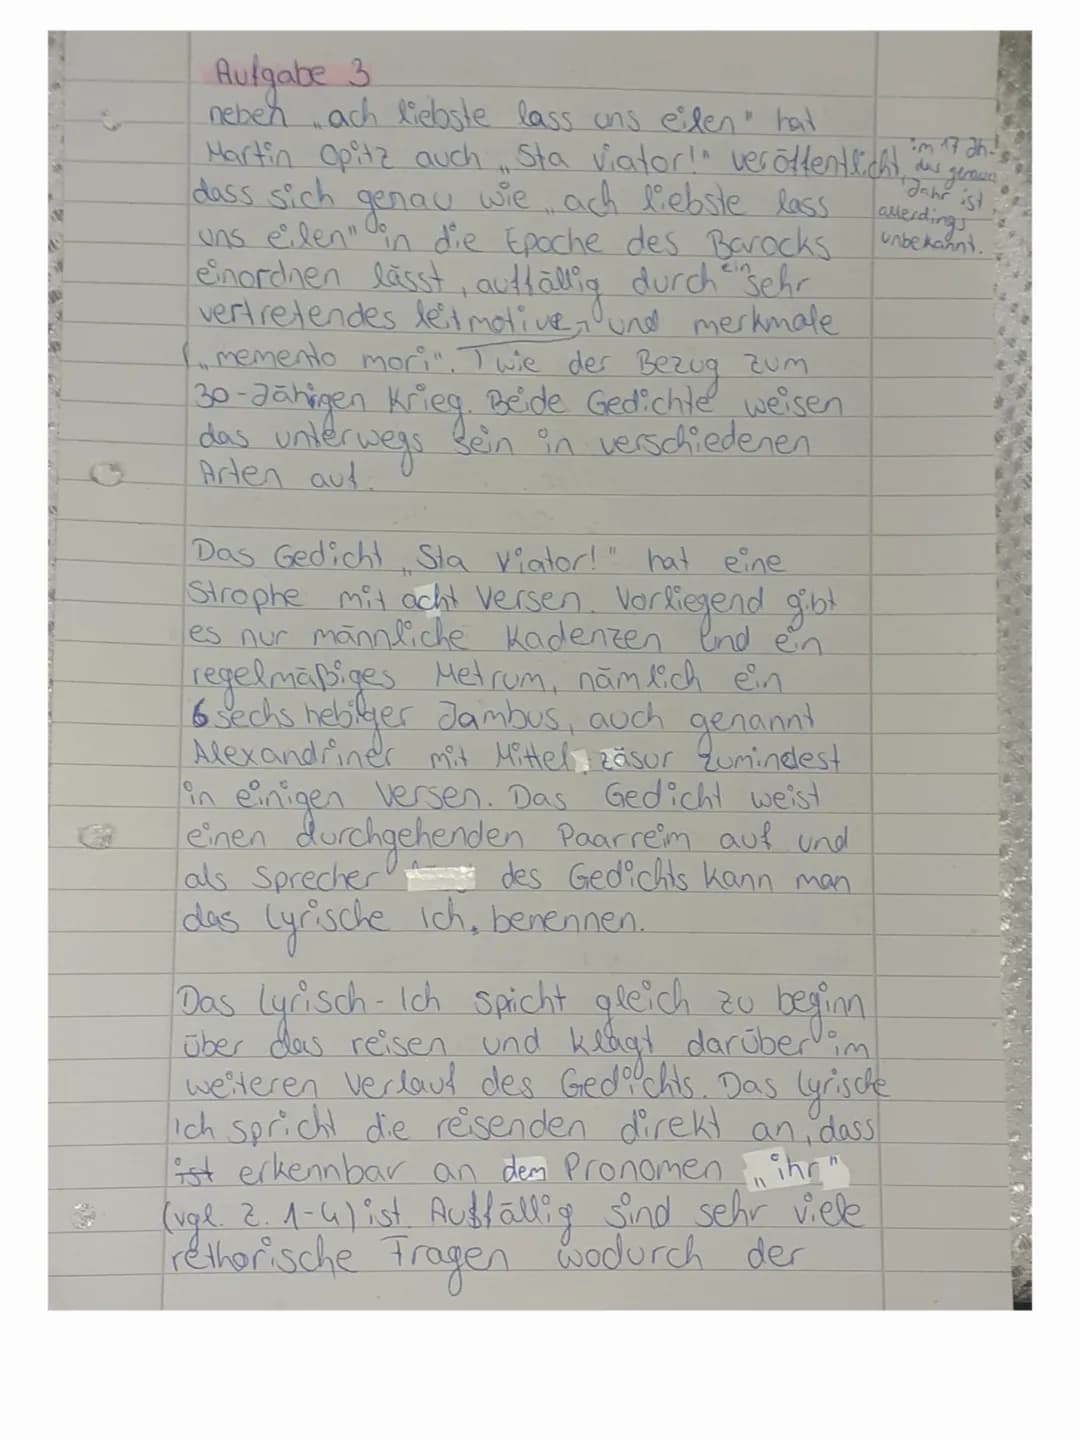 Aufgabe 3
neben „ach liebste lass uns eilen" hat
Martin Opitz auch „Sta viator!" veröffentlicht,
im 17 Jh.
das genaue
Jahr ist
allerdings
unbekannt.
dass sich genau wie „ach liebste lass
uns eilen" in die Epoche des Barocks
einordnen lässt, auffällig durch ein sehr
vertretendes leitmotive, und merkmale
„memento mori". wie der Bezug zum
30-Jährigen Krieg. Beide Gedichte weisen
das unterwegs sein in verschiedenen
Arten auf.
Das Gedicht „Sta viator!" hat eine
Strophe mit acht Versen. Vorliegend gibt
es nur männliche Kadenzen und ein
regelmäßiges Metrum, nämlich ein
6 sechs hebiger Jambus, auch genannt
Alexandriner mit Mittel zäsur zumindest
in einigen Versen. Das Gedicht weist
einen durchgehenden Paarreim auf und
als Sprecher des Gedichts kann man
das lyrische ich, benennen.
Das lyrisch-Ich spicht gleich zu beginn
über das reisen und klagt darüber im
weiteren Verlauf des Gedichts. Das lyrische
ich spricht die reisenden direkt an, dass
ist erkennbar an dem Pronomen „ihr"
(vgl. Z. 1-4) ist. Auffällig sind sehr viele
rethorische Fragen wodurch der